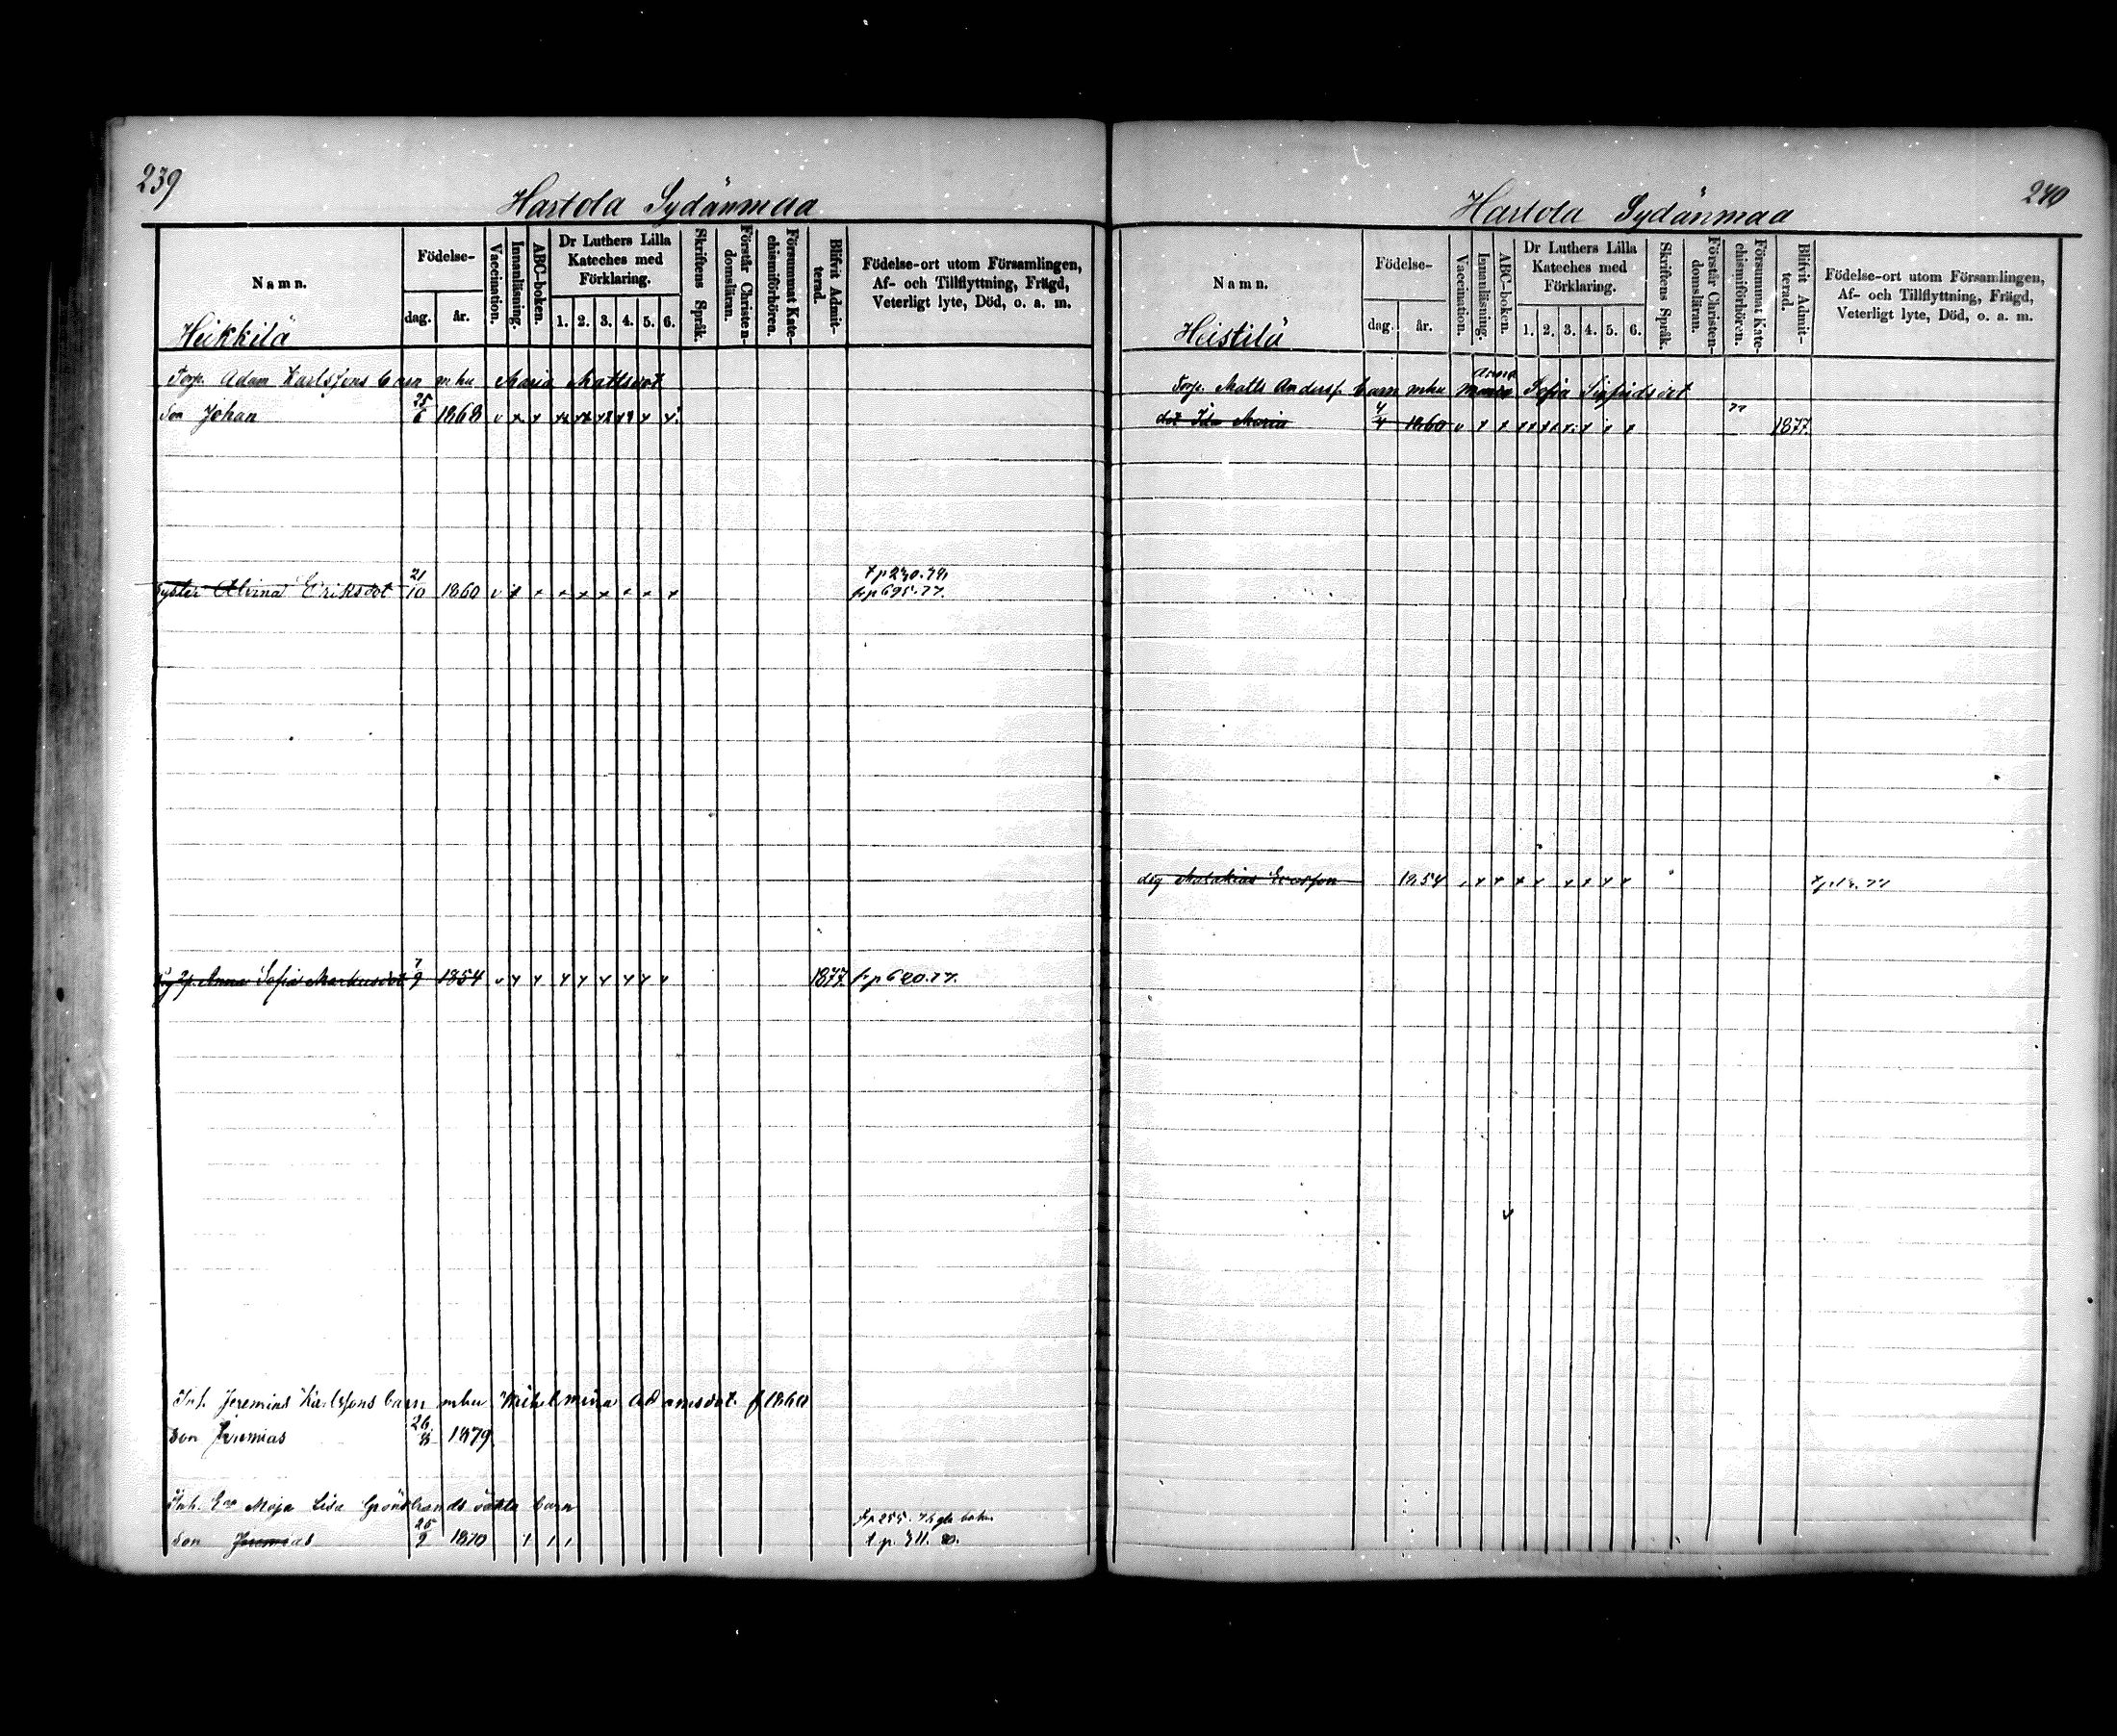 239
Hartola Sydänmaa
Namn.
Födelse-
dag.
år.
Vaccination.
Innanläsning.
ABC-boken.
Dr Luthers Lilla Kateches med Förklaring.
1. 2. 3. 4. 5. 6.
Skriftens Språk.
Förstår Christendomsläran.
Försummat Katechismiförhören.
Blifvit Admitterad.
Födelse-ort utom Församlingen, Af- och Tillflyttning, Frägd, Veterligt lyte, Död, o. a. m.
Heikkilä
Torp. Adam Karlssons barn mhu Maria Mattsdot
Son Johan 25/6 1868
Alvina Eriksdot 21/10 1860
fr p 695. 77.
Anna Sofia Markusdot 7/9 1854 1877. fr p 620. 77.
Inh. Jeremias Karlssons barn mhu Vilhelmina Adamsdot. f 1860
Son Jeremias 26/8 1879
Inh. Maja Lisa Grönstrands oäkta barn
Son Jeremias 25/9 1870
240
Hartola Sydänmaa
Namn.
Födelse-
dag.
år.
Vaccination.
Innanläsning.
ABC-boken.
Dr Luthers Lilla Kateches med Förklaring.
1. 2. 3. 4. 5. 6.
Skriftens Språk.
Förstår Christendomsläran.
Försummat Katechismiförhören.
Blifvit Admitterad.
Födelse-ort utom Församlingen, Af- och Tillflyttning, Frägd, Veterligt lyte, Död, o. a. m.
Heistilä
Torp. Matts Anderss. barn mhu Maria Anna Sofia Sigfridsdot
dot Ida Maria 4/4 1860 77 1877.
1854